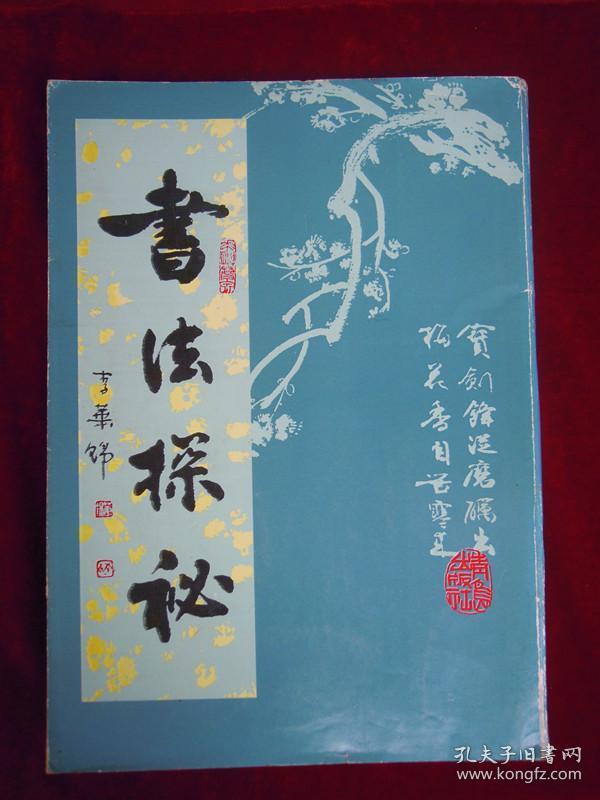 書法探祕
李葉錦
寶劍鋒從磨礪出
梅花香自苦寒來
青島出版社
孔夫子旧书网
www.kongfz.com